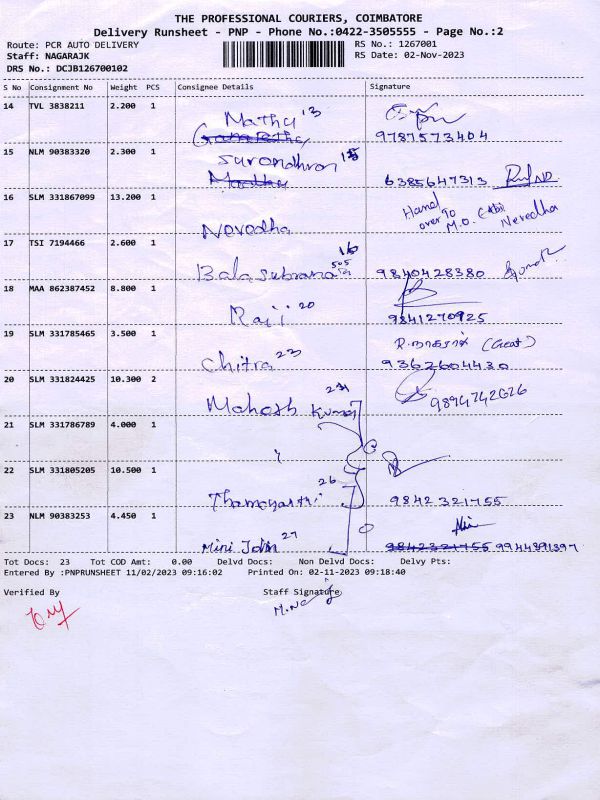 THE PROFESSIONAL COURIERS, COIMBATORE
Delivery Runsheet - PNP - Phone No.:0422-3505555 - Page No.:2
Route: PCR AUTO DELIVERY RS No.: 1267001
Staff: NAGARAJK RS Date: 02-Nov-2023
DRS No.: DCJB126700102
S No Consignment No Weight PCS Consignee Details Signature
14 TVL 3838211 2.200 1
Mathu 13
9787573404
15 NLM 90383320 2.300 1
15
6385647313
16 SLM 331867099 13.200 1 Hand over to M.O. Nevedha
Nevedha
17 TSI 7194466 2.600 1
16
9840428380
18 MAA 862387452 8.800 1
Raji 20
9841270925
19 SLM 331785465 3.500 1 (Great)
Chitra 23 9362604430
20 SLM 331824425 10.300 2
Mahesh Kumar 9894742626
21 SLM 331786789 4.000 1
22 SLM 331805205 10.500 1
26
9842321755
23 NLM 90383253 4.450 1
Mini John 27 9842321755 9944391397
Tot Docs: 23 Tot COD Amt: 0.00 Delvd Docs: Non Delvd Docs: Delvy Pts:
Entered By :PNPRUNSHEET 11/02/2023 09:16:02 Printed On: 02-11-2023 09:18:40
Verified By Staff Signature